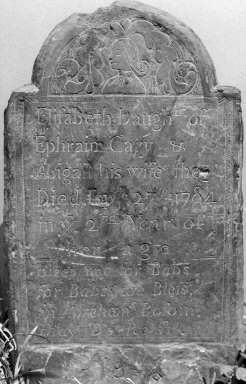 Elisabeth Daughr of
Ephraim Cary &
Abigail his wife who
Died July 27th 1784
in ye 2nd Year of
her age
Weep not for Babs,
for Babes are Bless,
in Abraham Bosom,
they Do Rest